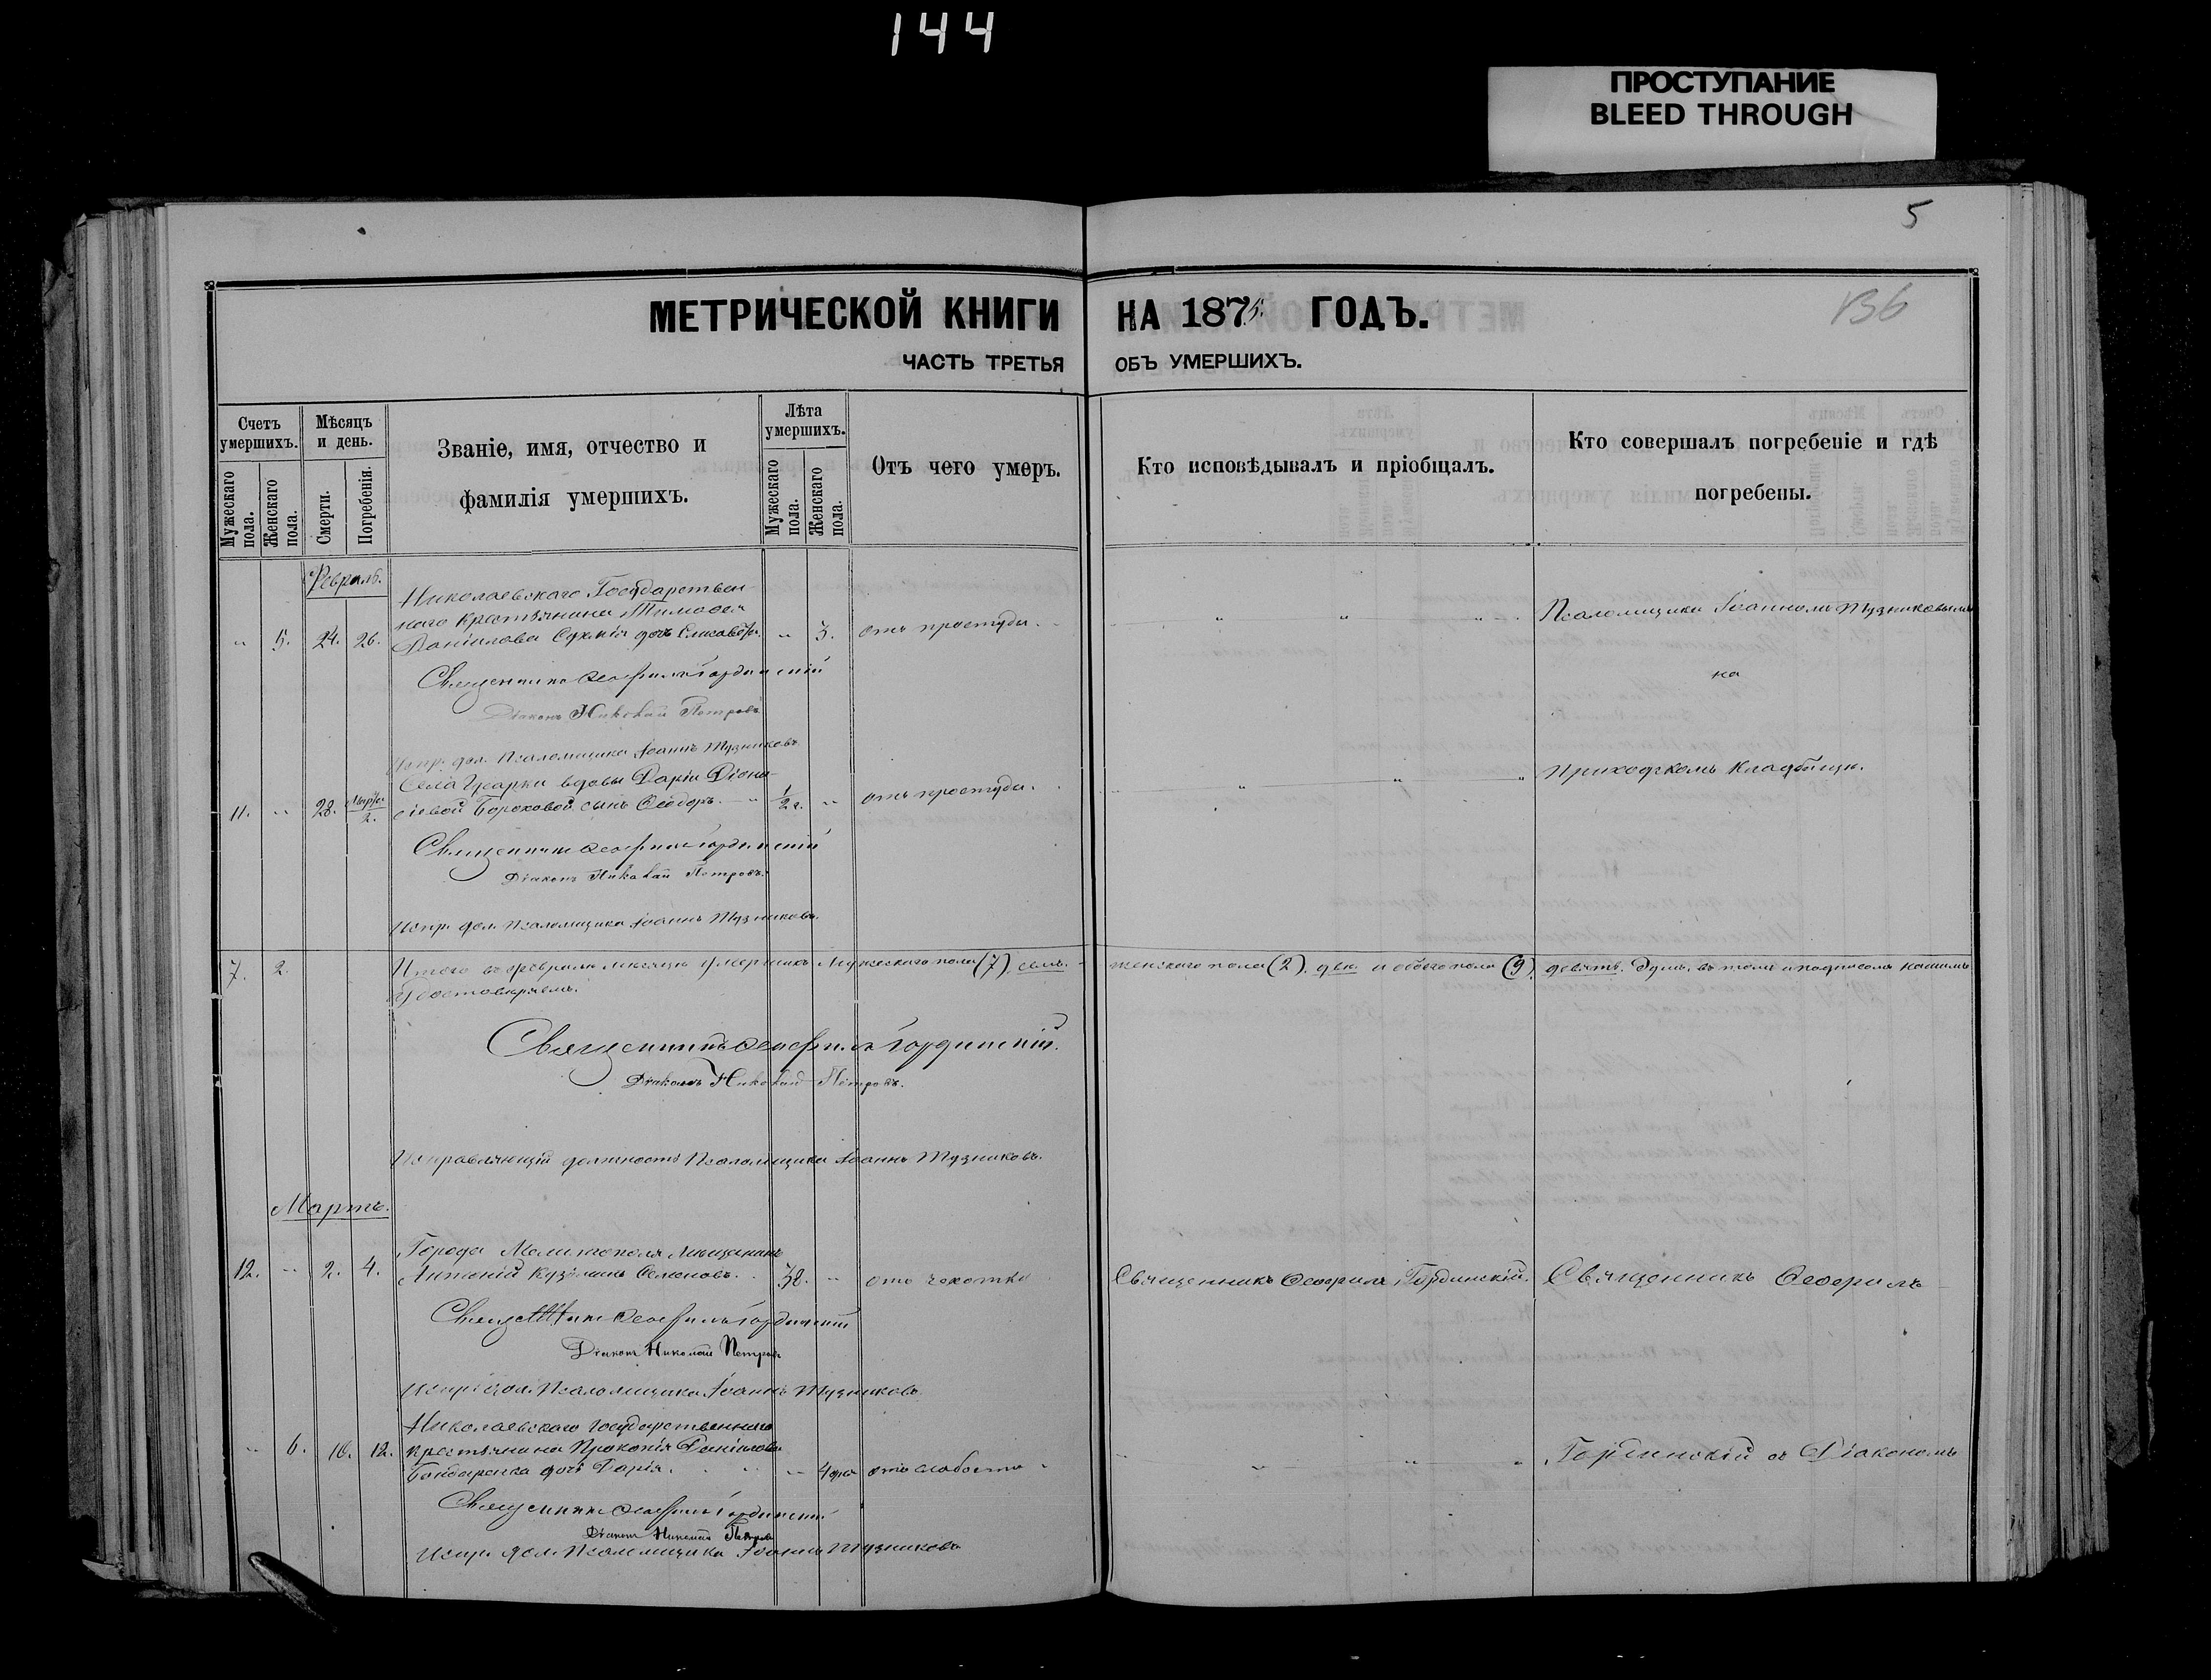 144
ПРОСТУПАНИЕ
BLEED THROUGH
5
136
МЕТРИЧЕСКОЙ КНИГИ НА 1875 ГОДЪ.
ЧАСТЬ ТРЕТЬЯ ОБЪ УМЕРШИХЪ.
Счетъ умершихъ.
Мужескаго пола.
Женскаго пола.
Мѣсяцъ и день.
Смерти.
Погребенія.
Званіе, имя, отчество и
фамилія умершихъ.
Лѣта умершихъ.
Мужескаго пола.
Женскаго пола.
Отъ чего умеръ.
Кто исповѣдывалъ и пріобщалъ.
Кто совершалъ погребеніе и гдѣ
погребены.
Февраль.
Николаевскаго Государствен
наго крестьянина Тимофея
" 5. 24. 26. Данилова дочь Елисавета. " 3. отъ простуды. " " " Псаломщикъ Іоанномъ Тузниковымъ
Священникъ Ѳеофилъ Гординскій
на
Діаконъ Николай Петровъ
Испр. дол. Псаломщика Іоаннъ Тузниковъ
Села вдовы Даріи Діони
11. " 28. Марта 2. сіевой Бороховой сынъ Ѳеодоръ. " 1/2 г. " отъ простуды. " " " приходскомъ кладбищѣ.
Священникъ Ѳеофилъ Гординскій
Діаконъ Николай Петровъ.
Испр. дол. Псаломщика Іоаннъ Тузниковъ.
7. 2. Итого въ Февралѣ мѣсяцѣ умершихъ Мужескаго пола (7) семь. женскаго пола (2). двѣ. и обоего пола (9) девять. душъ. въ томъ и подписомъ нашимъ
удостовѣряемъ.
Священникъ Ѳеофилъ Гординскій.
Діаконъ Николай Петровъ.
Исправляющій должность Псаломщика Іоаннъ Тузниковъ.
Мартъ.
Города Мелитополя мѣщанинъ
12. " 2. 4. Антоній Кузминъ Семеновъ. 38. " отъ чахотки Священникъ Ѳеофилъ Гординскій. Священникъ Ѳеофилъ
Священникъ Ѳеофилъ Гординскій
Діаконъ Николай Петровъ
Испр. дол. Псаломщика Іоаннъ Тузниковъ
Николаевскаго Государственнаго
" 6. 10. 12. крестьянина Прокопія Данилова
Бондаренка дочь Дарія. " 4 дня отъ слабости " " " Гординскій съ Діакономъ
Священникъ Ѳеофилъ Гординскій
Діаконъ Николай Петровъ
Испр. дол. Псаломщика Іоаннъ Тузниковъ